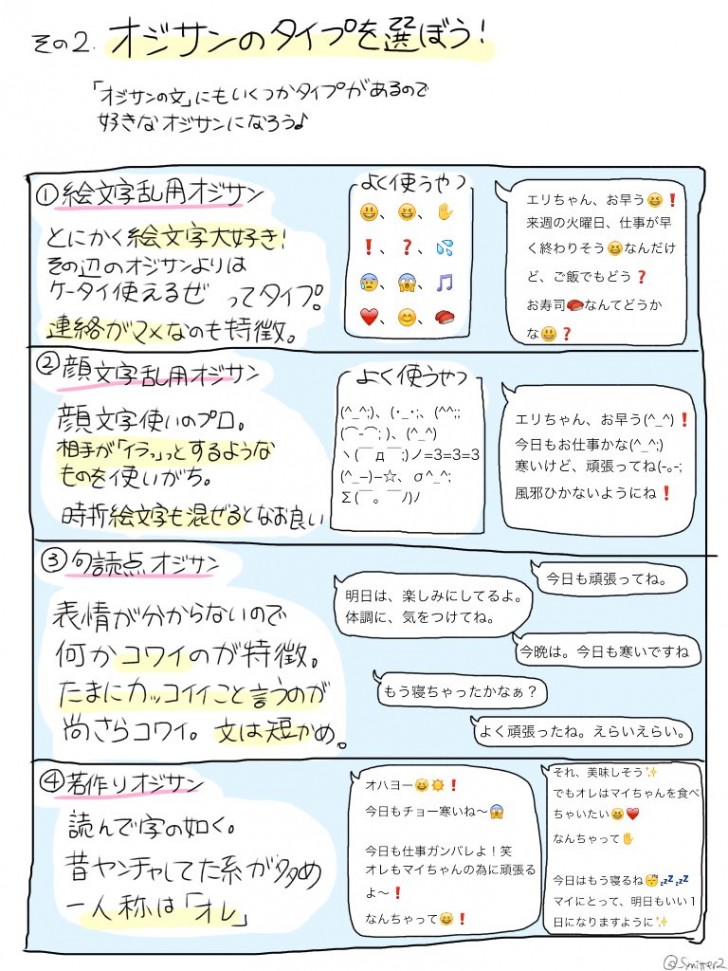 その2. オジサンのタイプを選ぼう!
「オジサンの文」にもいくつかタイプがあるので
好きなオジサンになろう♪
①絵文字乱用オジサン
とにかく絵文字大好き!
その辺のオジサンよりは
ケータイ使えるぜ ってタイプ!
連絡がマメなのも特徴。
よく使うやつ
😃、😄、✋
❗、❓、💦
😰、😱、🎵
❤️、😊、🍣
エリちゃん、お早う😆❗
来週の火曜日、仕事が早
く終わりそう😆なんだけ
ど、ご飯でもどう❓
お寿司🍣なんてどうか
な😃❓
②顔文字乱用オジサン
顔文字使いのプロ。
相手が「イラっ」っとするような
ものを使いがち。
時折絵文字も混ぜるとなお良い
よく使うやつ
(^_^;)、(・_・;、(^^;;
(⌒-⌒; )、(^_^)
ヽ(￣д￣;)ノ=3=3=3
(^_−)−☆、σ^_^;
Σ(￣。￣ﾉ)ﾉ
エリちゃん、お早う(^_^)❗
今日もお仕事かな(^_^;)
寒いけど、頑張ってね(-｡-;
風邪ひかないようにね❗
③句読点オジサン
表情が分からないので
何かコワイのが特徴。
たまにカッコイイこと言うのが
尚さらコワイ。文は短かめ。
今日も頑張ってね。
明日は、楽しみにしてるよ。
体調に、気をつけてね。
今晩は。今日も寒いですね
もう寝ちゃったかなぁ？
よく頑張ったね。えらいえらい。
④若作りオジサン
読んで字の如く。
昔ヤンチャしてた系が多め
一人称は「オレ」
オハヨー😆☀️❗
今日もチョー寒いね〜😱
今日も仕事ガンバレよ！笑
オレもマイちゃんの為に頑張る
よ〜❗
なんちゃって😆❗
それ、美味しそう✨
でもオレはマイちゃんを食べ
ちゃいたい😆❤️
なんちゃって✋
今日はもう寝るね😴💤💤
マイにとって、明日もいい１
日になりますように✨